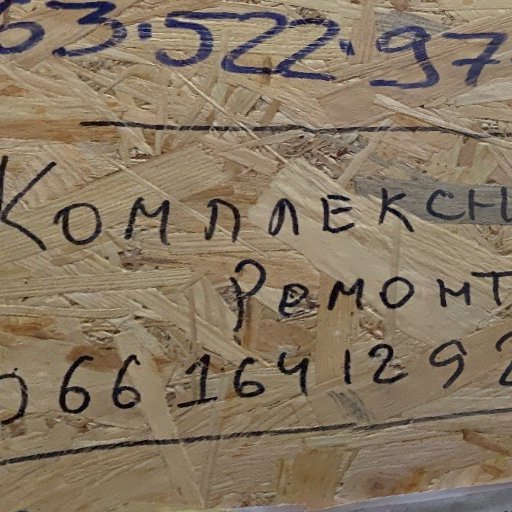 63·522·97
Комплексн
Ремонт
066 164 12 92